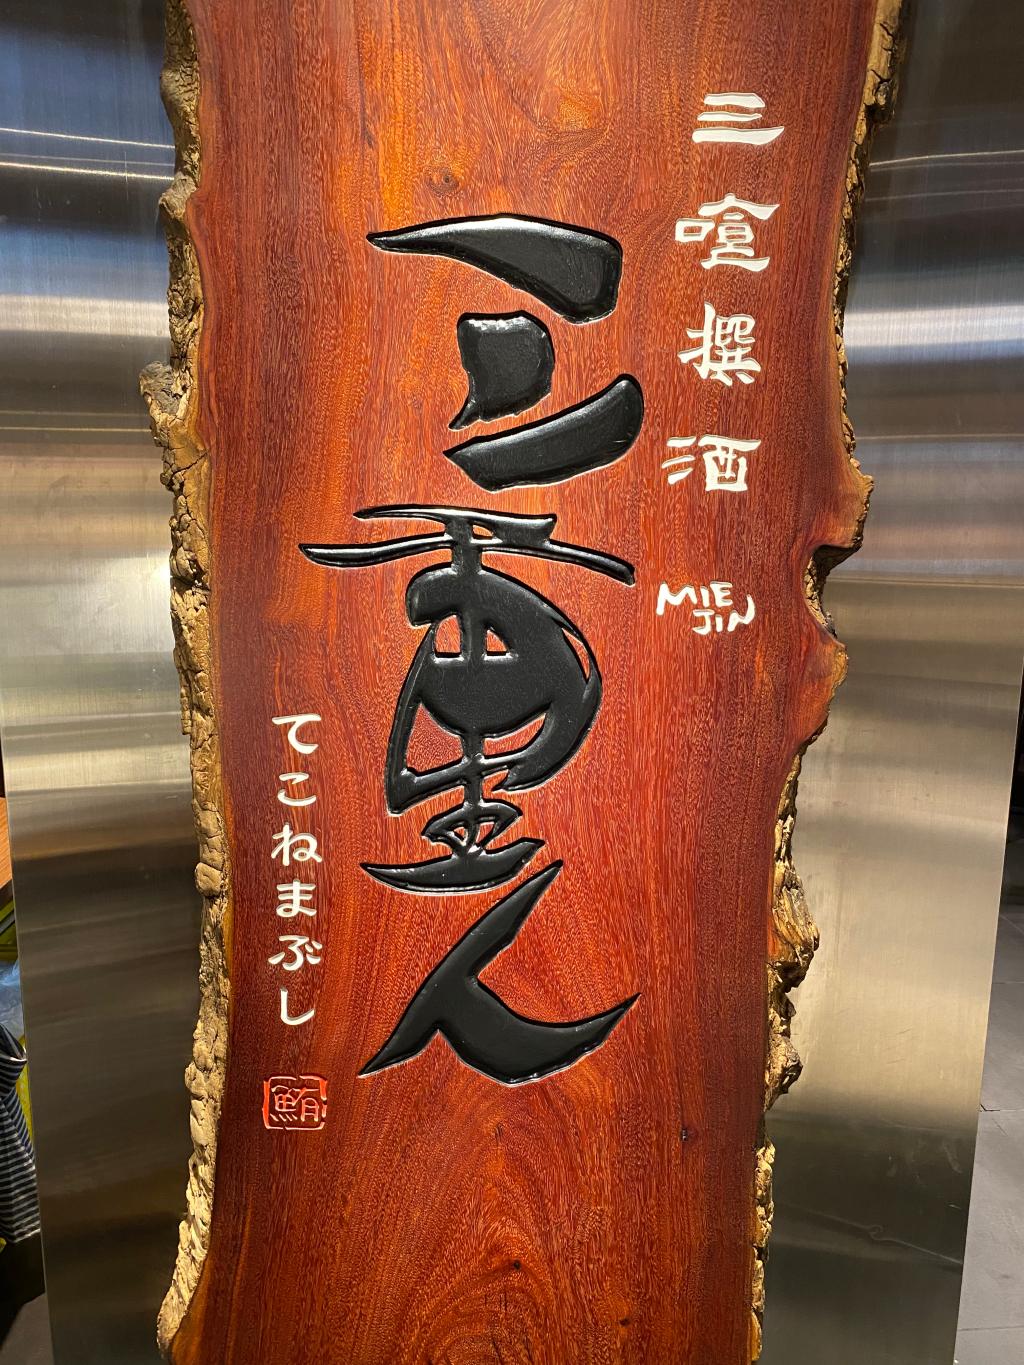 三喰撰酒
MIE
JIN
三重人
てこねまぶし
鮨